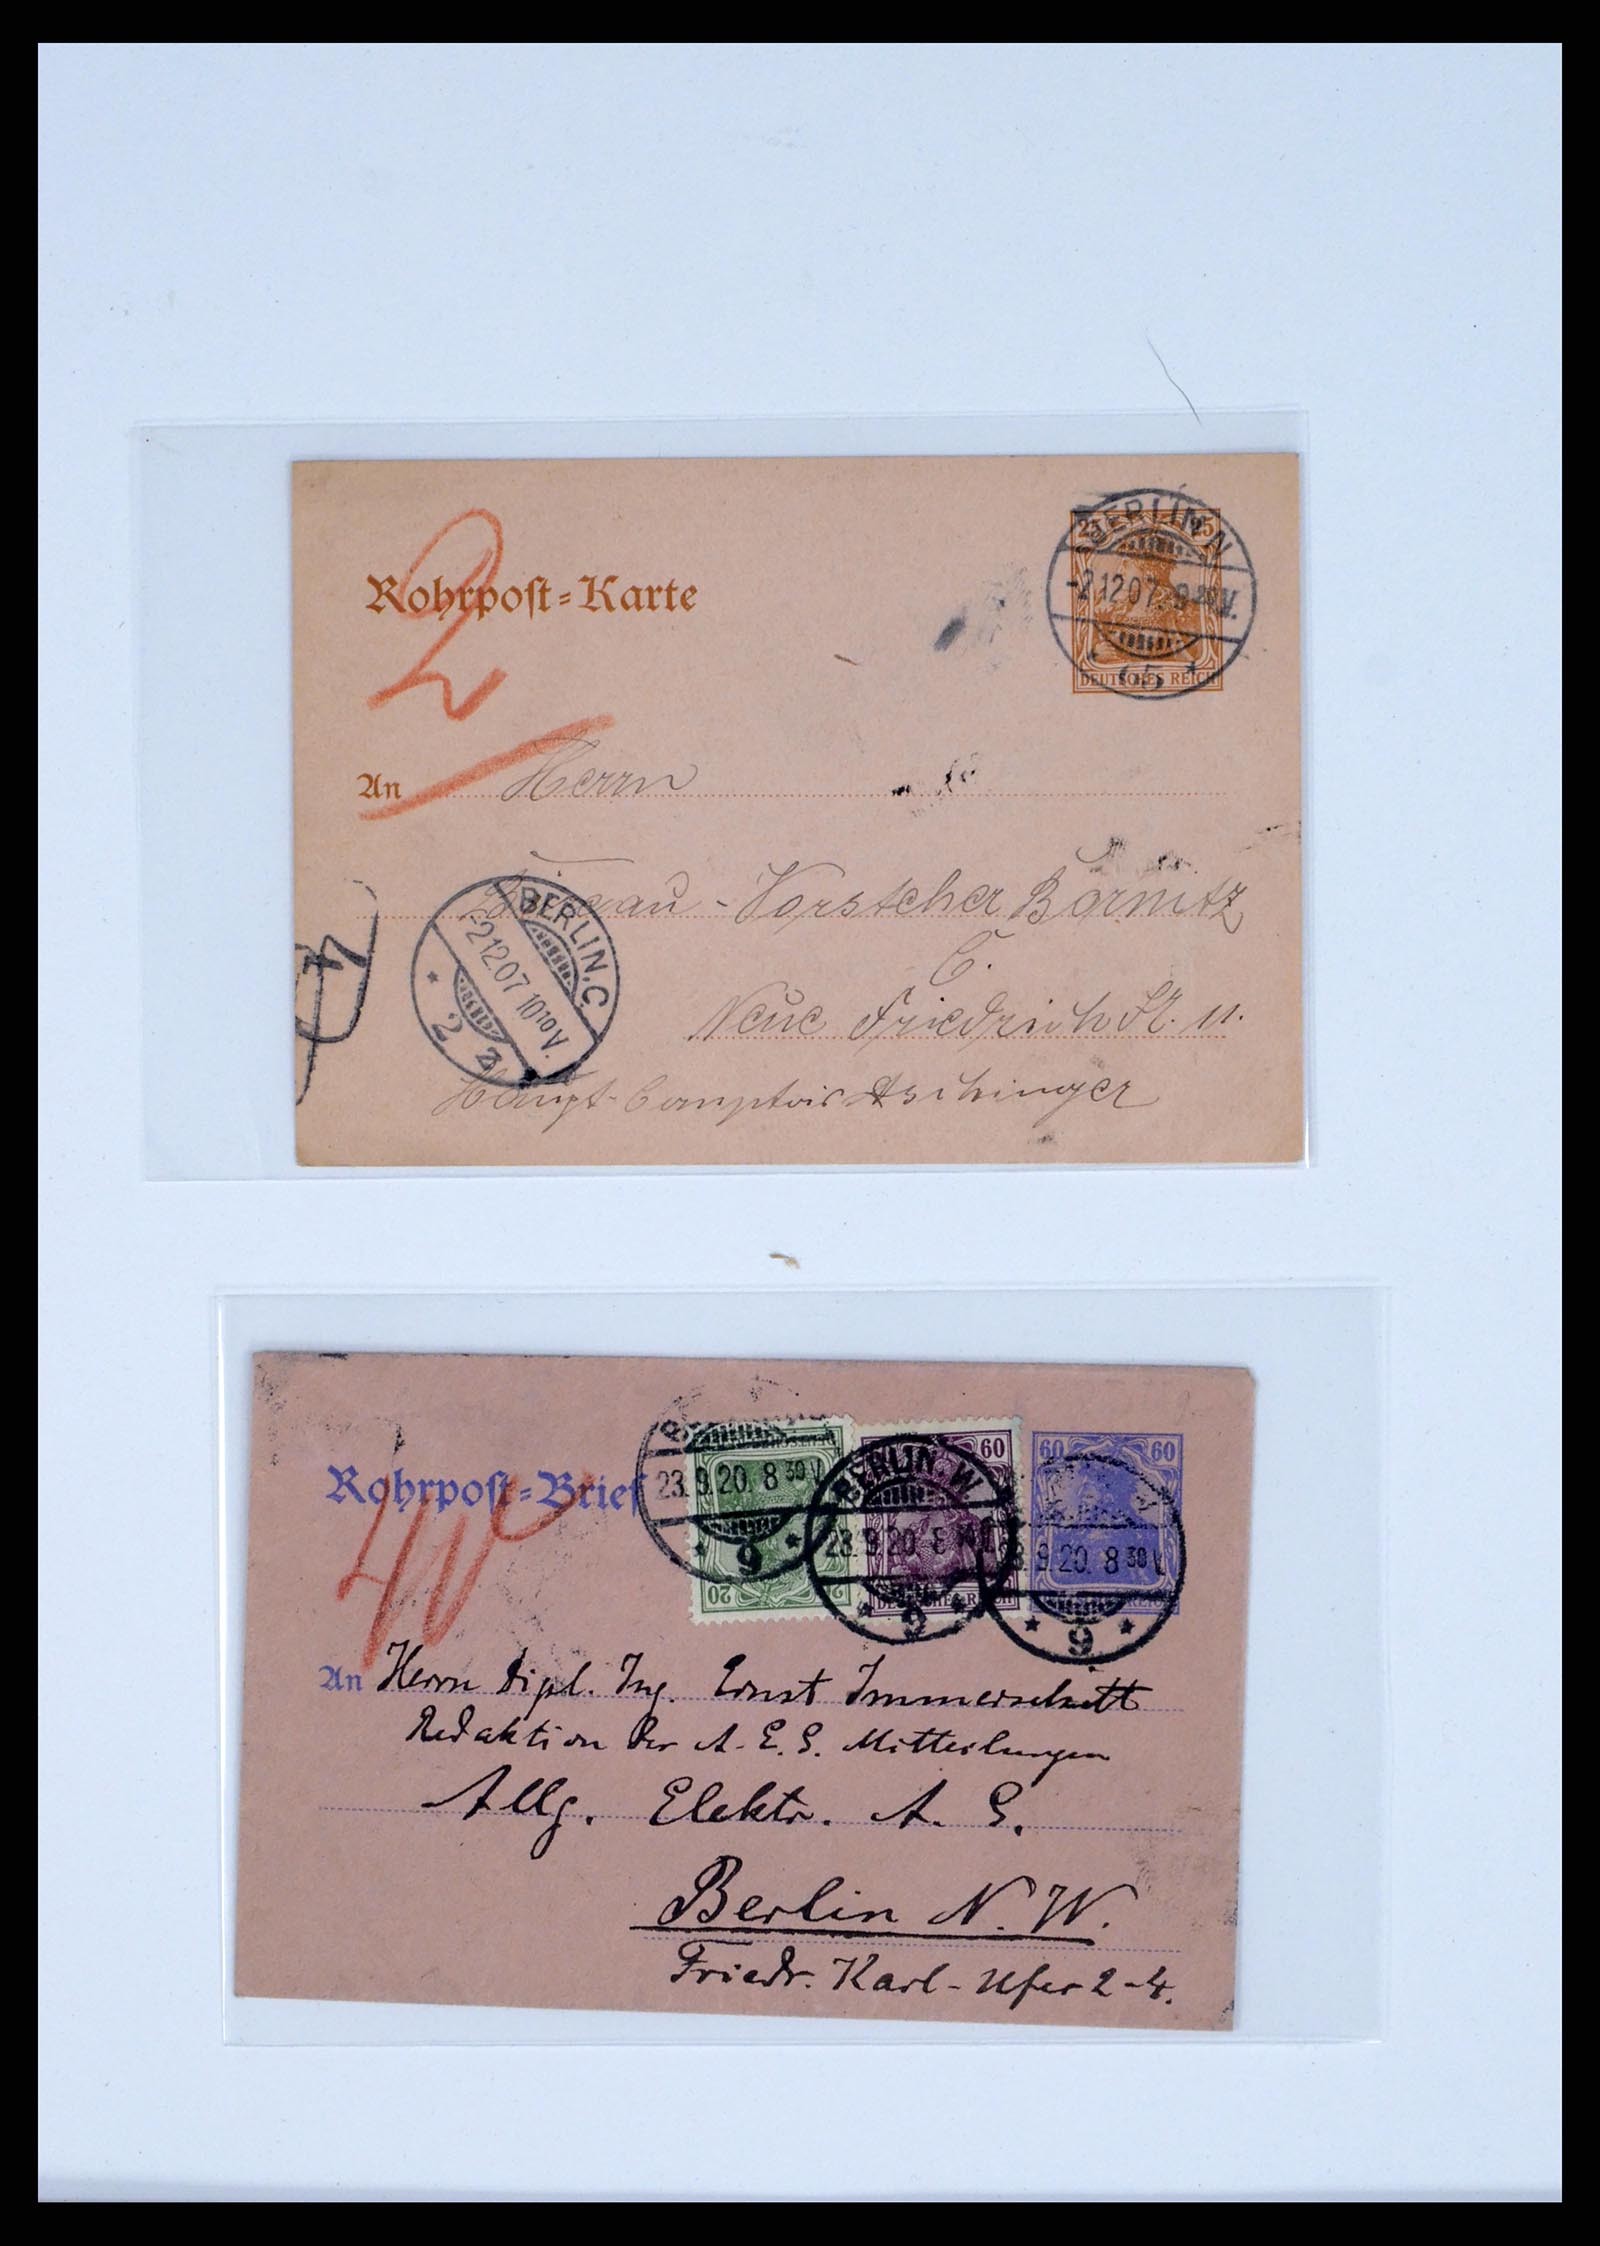 25 25
DEUTSCHES REICH
BERLIN N
-2.12.07. 9 20 V.
* 65 *
2
Rohrpost=Karte
An Herrn
Büreau-Vorsteher Bornitz
C.
Neue Friedrich St. 11.
Haupt-Comptoir Aschinger
BERLIN.C.
-2.12.07 10 10 V.
* 2 z
Rohrpost=Brief
23.9.20. 8 30 V
* 9 *
20 20
60
BERLIN.W
23.9.20. 8 30 V
* 9 *
60 60
9.20. 8 30 V
* 9 *
An Herrn Dipl. Ing. Ernst Immerschitt
Redaktion der A.E.G. Mitteilungen
Allg. Elektr. A. G.
Berlin N.W.
Friedr. Karl-Ufer 2-4.